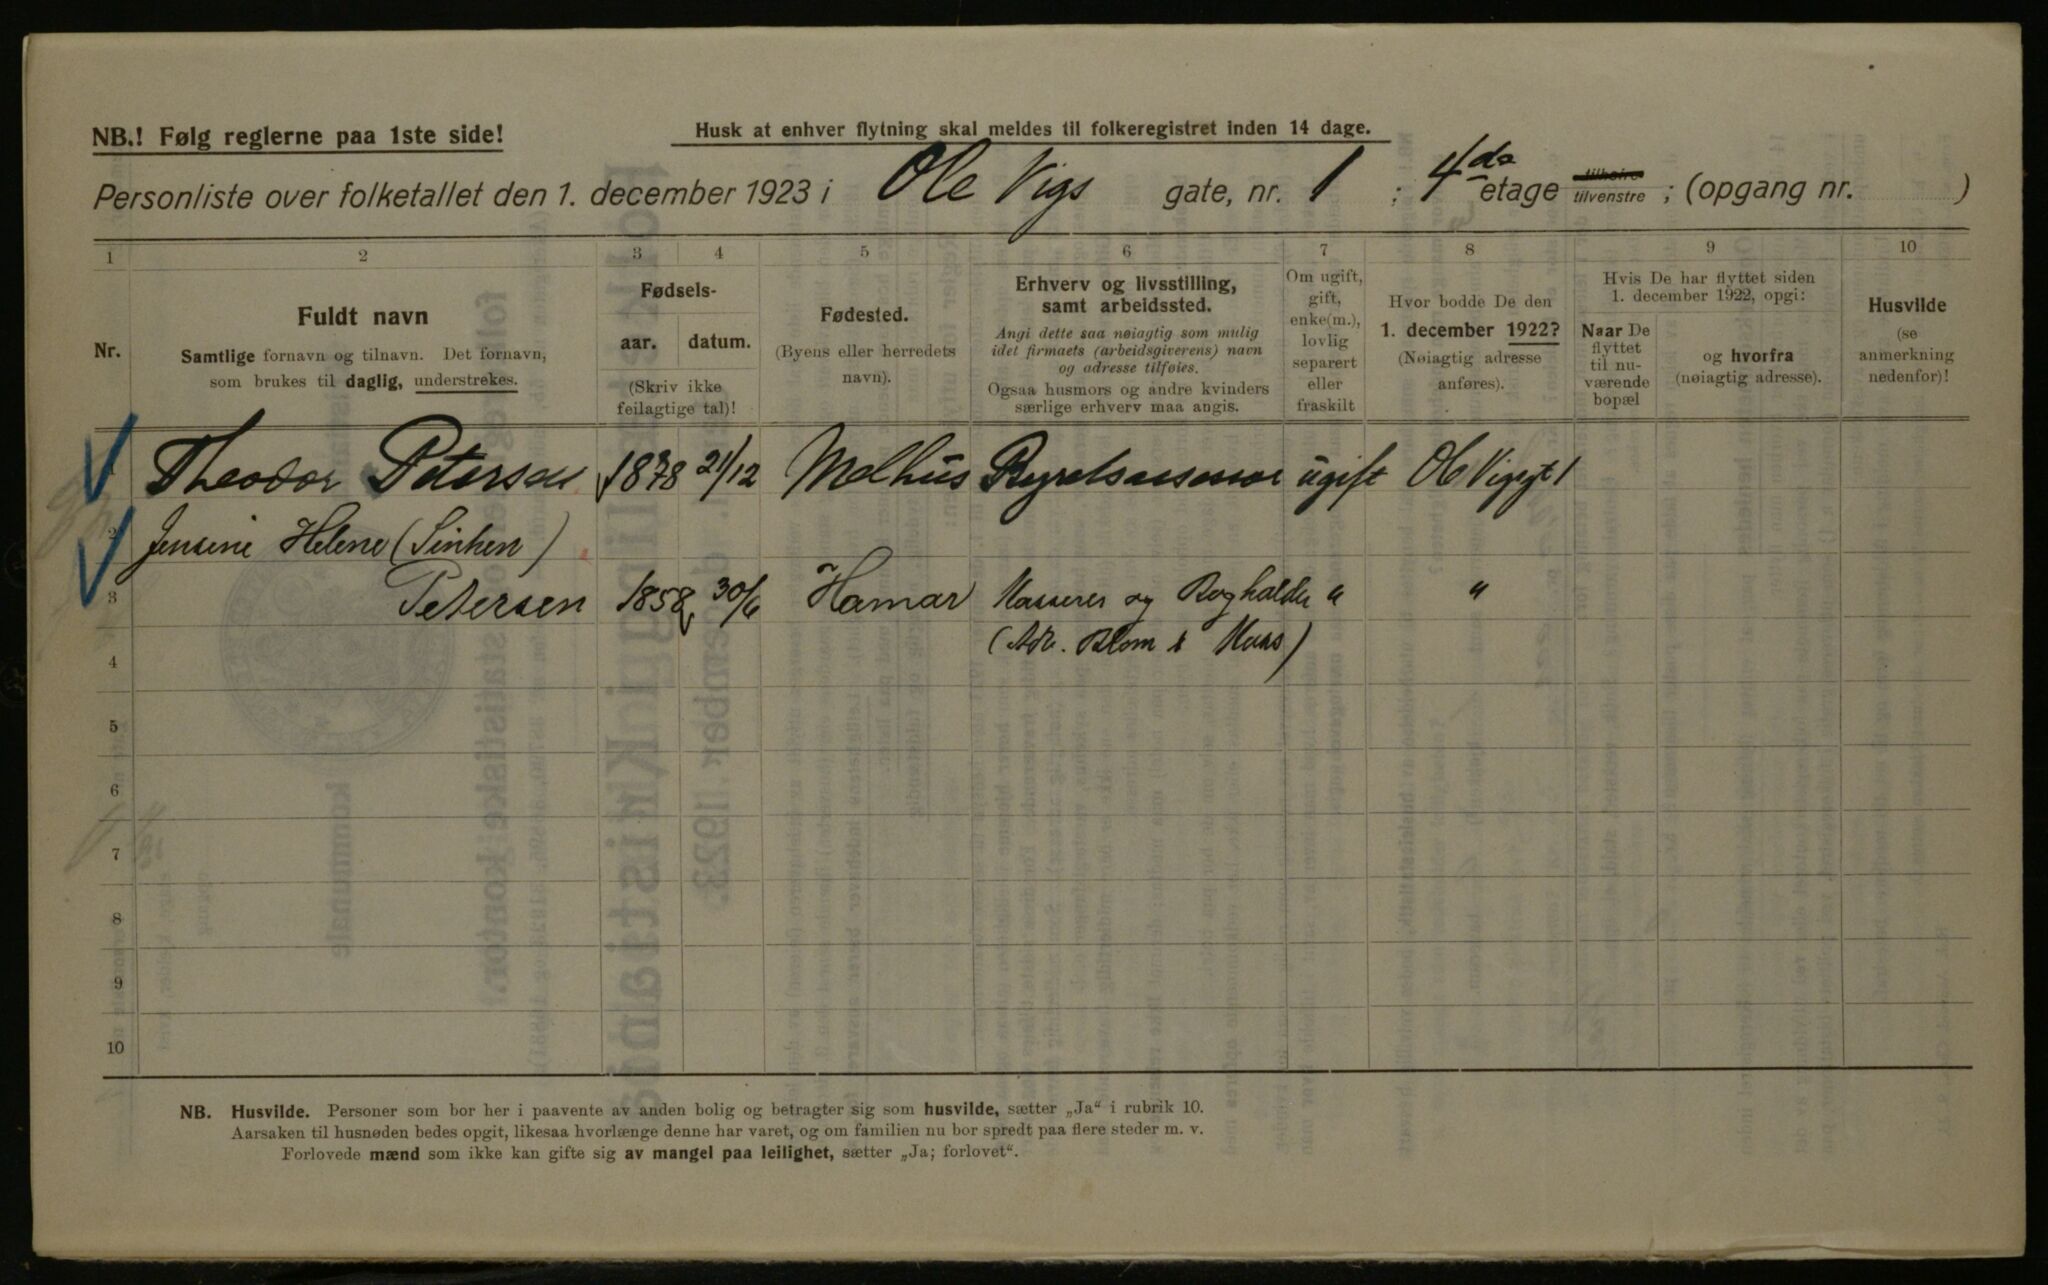 NB.! Følg reglerne paa 1ste side!
Husk at enhver flytning skal meldes til folkeregistret inden 14 dage.
Personliste over folketallet den 1. december 1923 i Ole Vigs gate, nr. 1 ; 4de etage tilhøire tilvenstre ; (opgang nr. )
1 2 3 4 5 6 7 8 9 10
Nr.
Fuldt navn
Samtlige fornavn og tilnavn. Det fornavn,
som brukes til daglig, understrekes.
Fødsels-
aar. datum.
(Skriv ikke
feilagtige tal)!
Fødested.
(Byens eller herredets
navn).
Erhverv og livsstilling,
samt arbeidssted.
Angi dette saa nøiagtig som mulig
idet firmaets (arbeidsgiverens) navn
og adresse tilføies.
Ogsaa husmors og andre kvinders
særlige erhverv maa angis.
Om ugift,
gift,
enke(m.),
lovlig
separert
eller
fraskilt
Hvor bodde De den
1. december 1922?
(Nøiagtig adresse
anføres).
Hvis De har flyttet siden
1. december 1922, opgi:
Naar De
flyttet
til nu-
værende
bopæl
og hvorfra
(nøiagtig adresse).
Husvilde
(se
anmerkning
nedenfor)!
1 Theodor Petersen 1878 21/12 Melhus Byretsassessor ugift Ole Vigsgt 1
2 Jensine Helene (Sinken)
3 Petersen 1858 30/6 Hamar Kasserer og Bogholder " "
4 (Adv. Blom &
5
6
7
8
9
10
NB. Husvilde. Personer som bor her i paavente av anden bolig og betragter sig som husvilde, sætter „Ja“ i rubrik 10.
Aarsaken til husnøden bedes opgit, likesaa hvorlænge denne har varet, og om familien nu bor spredt paa flere steder m. v.
Forlovede mænd som ikke kan gifte sig av mangel paa leilighet, sætter „Ja; forlovet“.